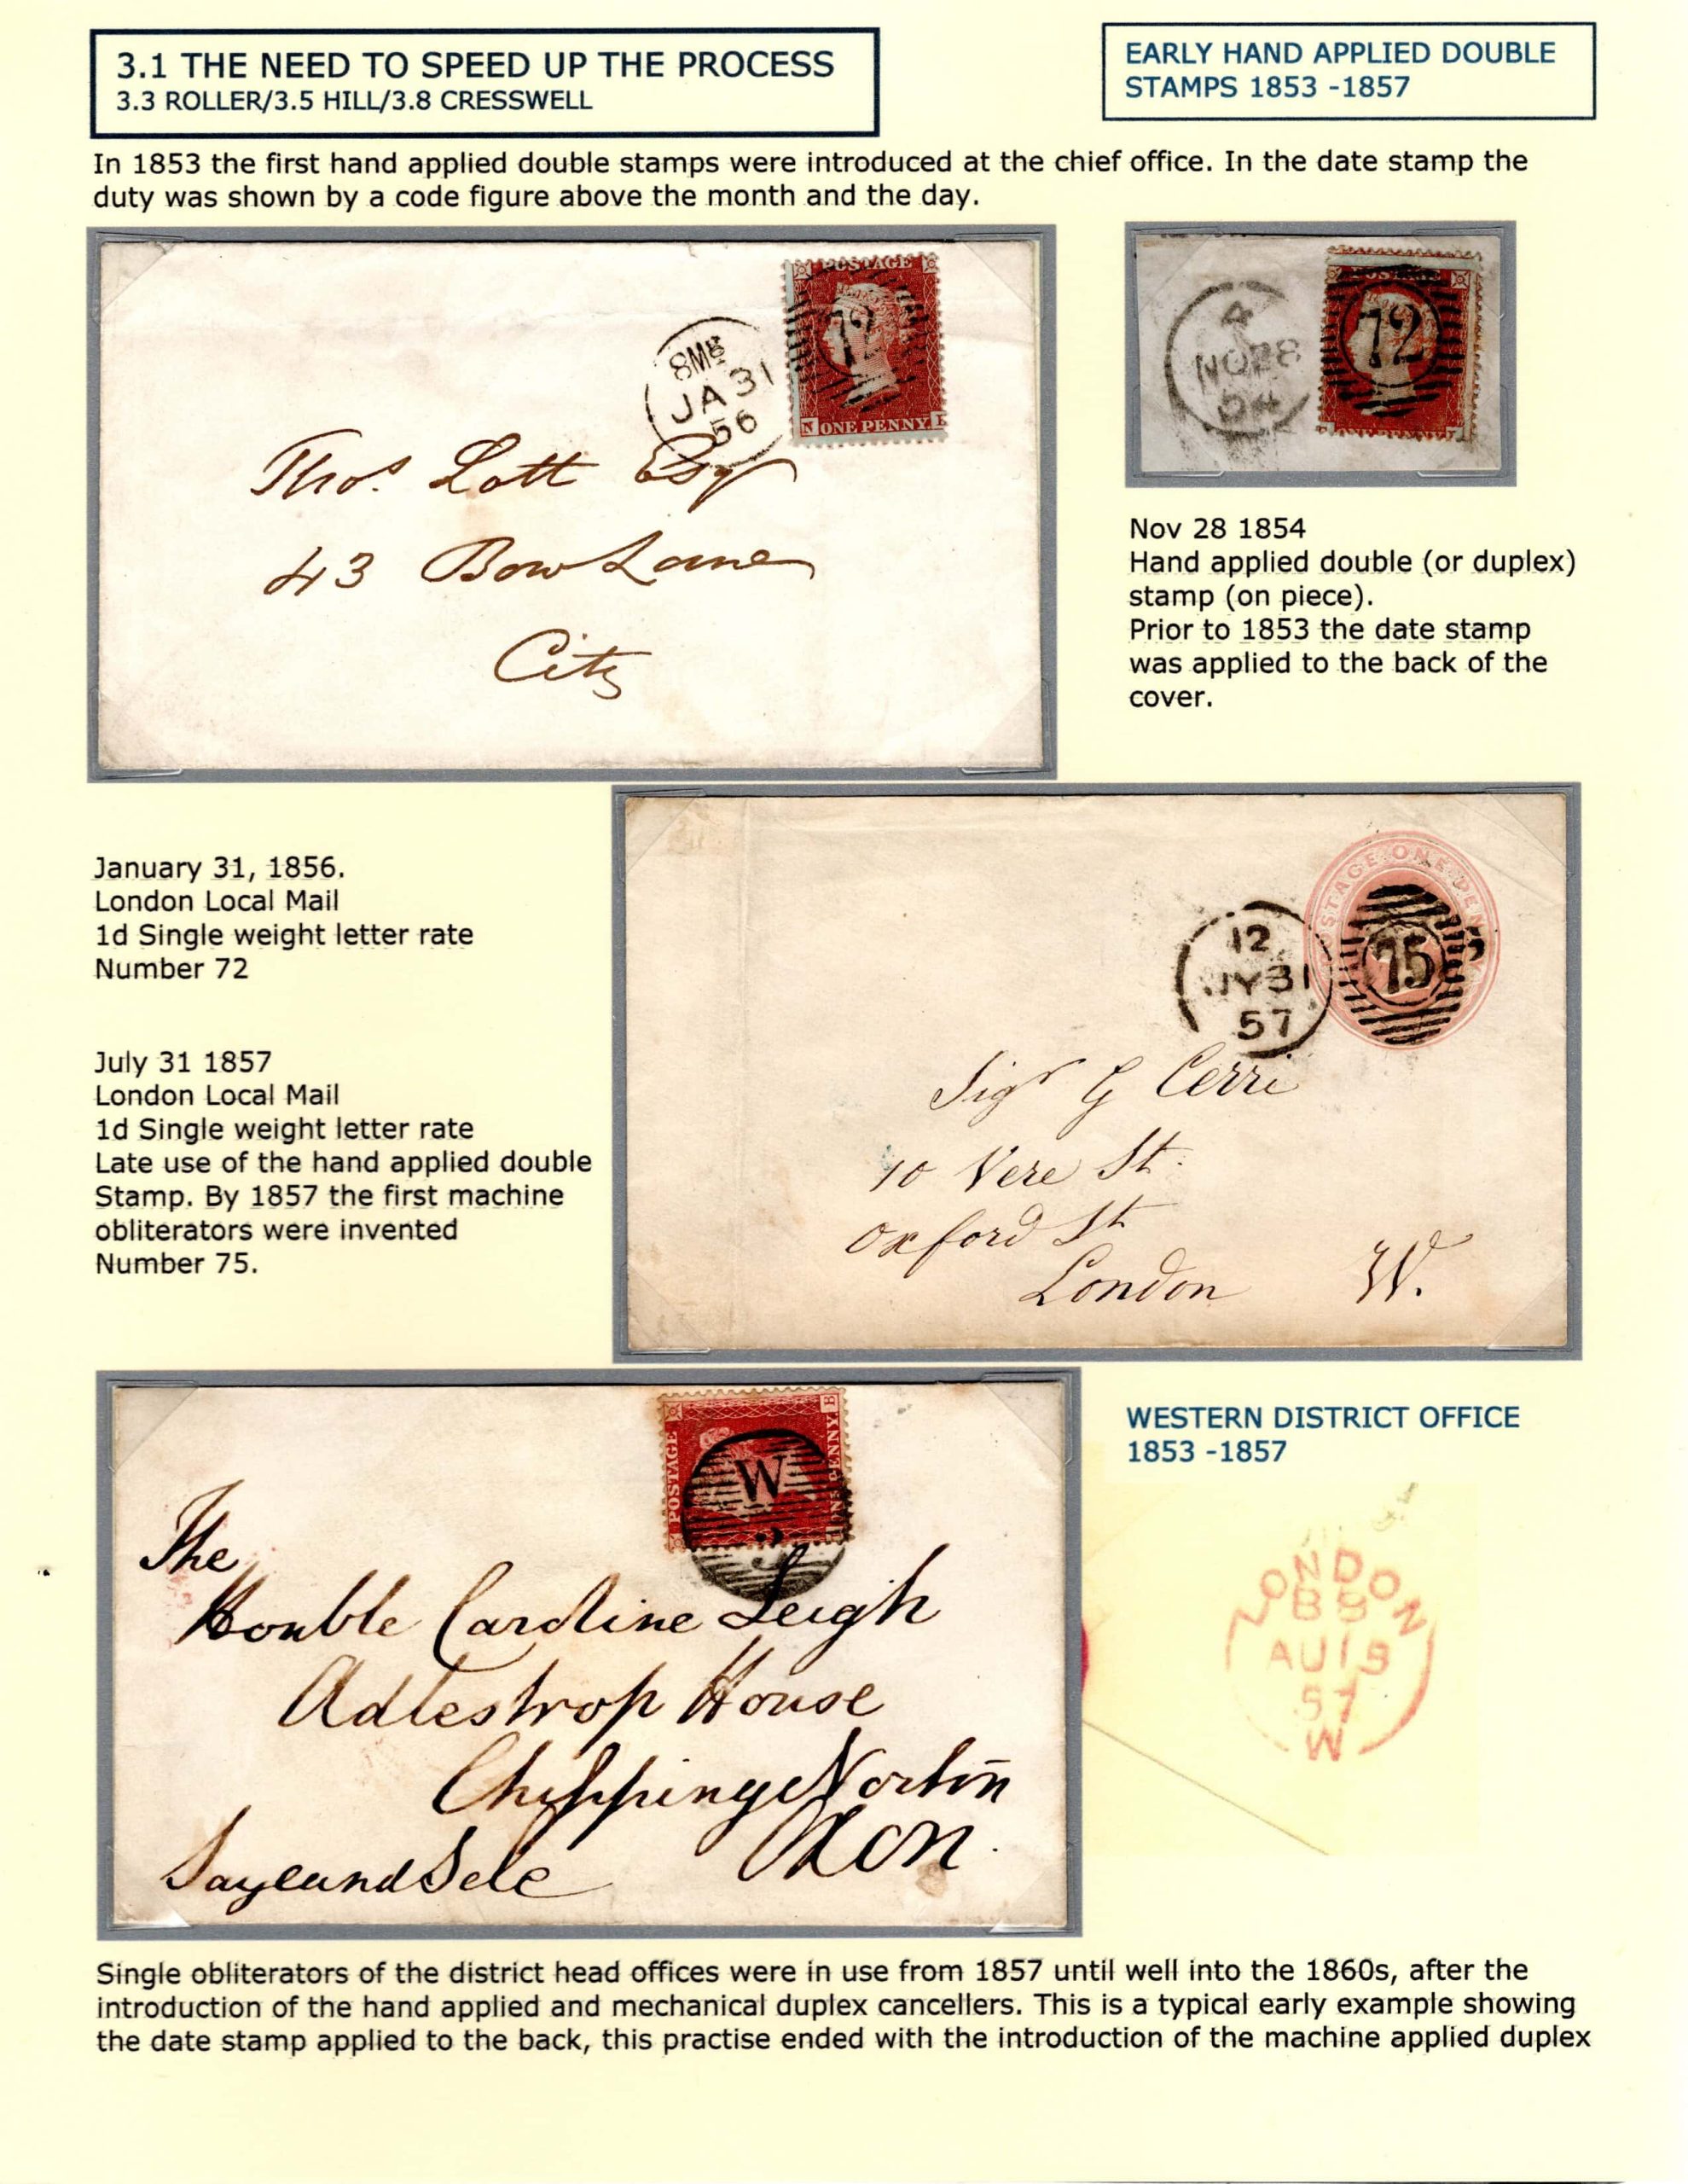 3.1 THE NEED TO SPEED UP THE PROCESS
3.3 ROLLER/3.5 HILL/3.8 CRESSWELL
EARLY HAND APPLIED DOUBLE
STAMPS 1853 -1857
In 1853 the first hand applied double stamps were introduced at the chief office. In the date stamp the
duty was shown by a code figure above the month and the day.
POSTAGE
72
N ONE PENNY E
8MB
JA 31
56
Thos. Lott Esqr
43 Bow Lane
City
4
NO 28
54
POSTAGE
72
Nov 28 1854
Hand applied double (or duplex)
stamp (on piece).
Prior to 1853 the date stamp
was applied to the back of the
cover.
January 31, 1856.
London Local Mail
1d Single weight letter rate
Number 72
July 31 1857
London Local Mail
1d Single weight letter rate
Late use of the hand applied double
Stamp. By 1857 the first machine
obliterators were invented
Number 75.
POSTAGE ONE PENNY
12
JY 31
57
75
Sigr G Cerri
10 Vere St.
Oxford St
London W.
POSTAGE
ONE PENNY
B
W
3
The
Honble Caroline Leigh
Adlestrop House
Chipping Norton
Oxon.
Saye and Sele
WESTERN DISTRICT OFFICE
1853 -1857
LONDON
AU 19
57
W
Single obliterators of the district head offices were in use from 1857 until well into the 1860s, after the
introduction of the hand applied and mechanical duplex cancellers. This is a typical early example showing
the date stamp applied to the back, this practise ended with the introduction of the machine applied duplex